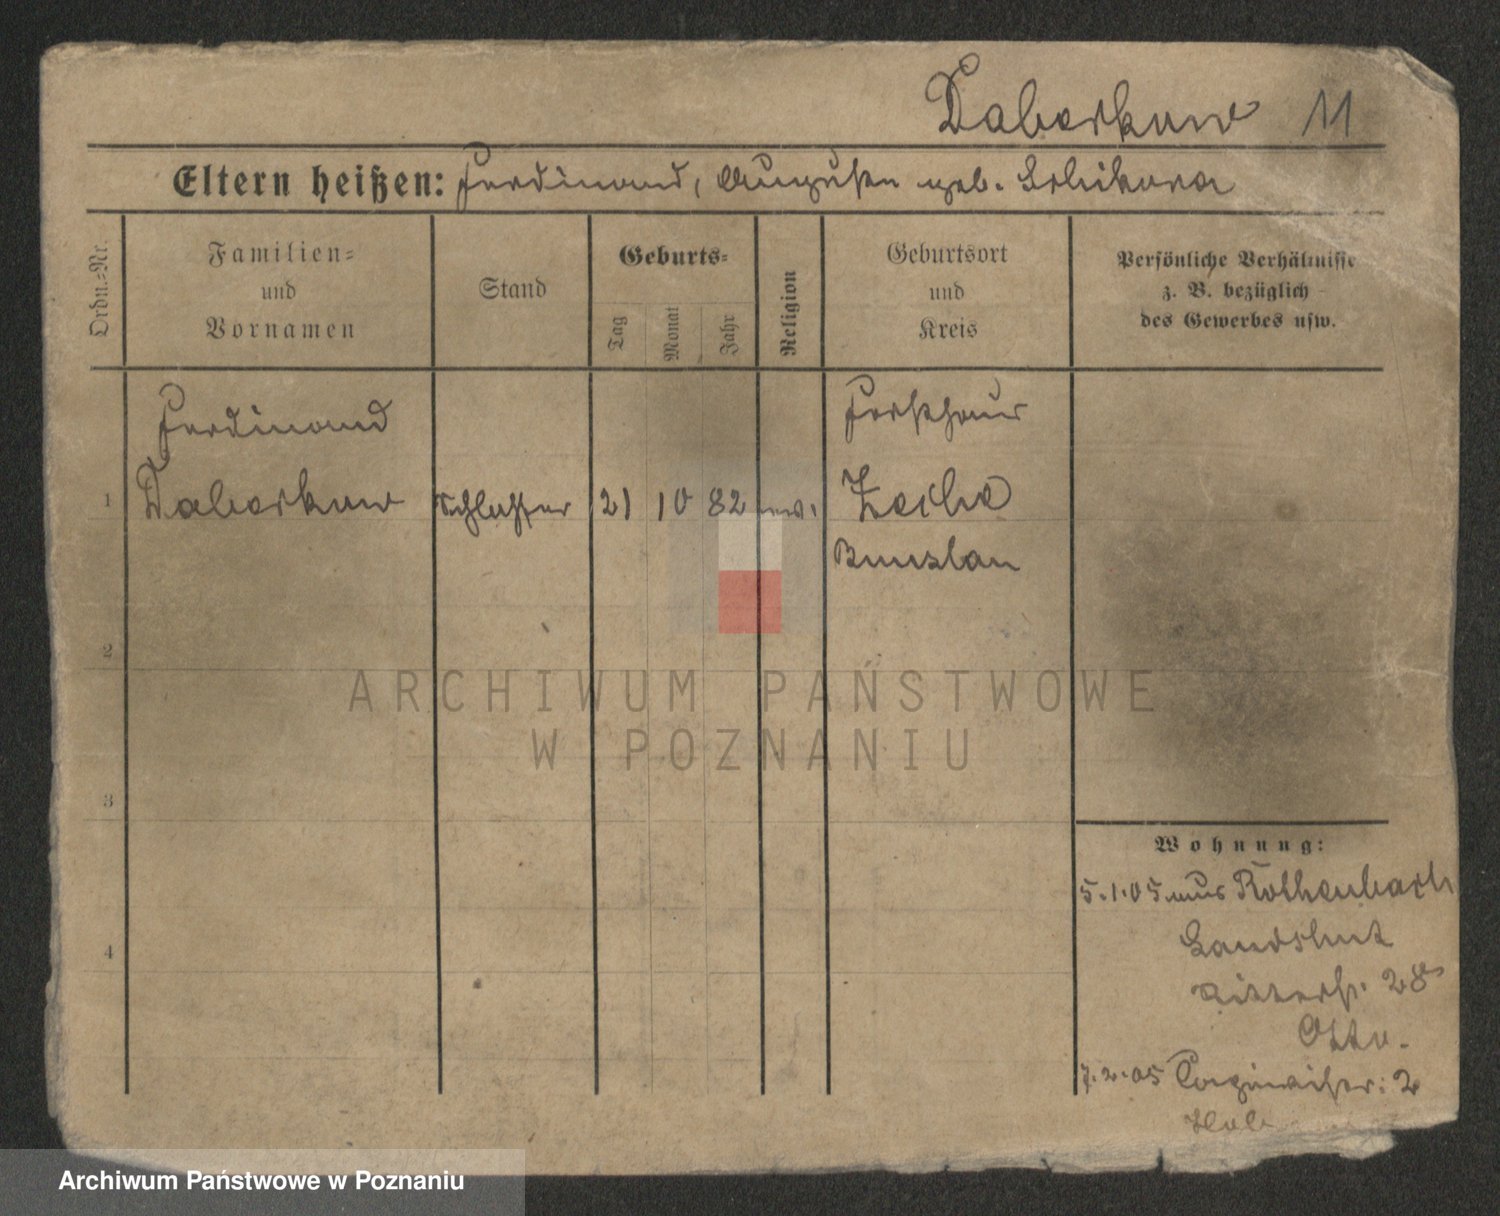 Daberkow 11
Eltern heißen: Ferdinand, Auguste geb. Schikora
Ordn.-Nr.
Familien-
und
Vornamen
Stand
Geburts-
Tag
Monat
Jahr
Religion
Geburtsort
und
Kreis
Persönliche Verhältnisse
z. B. bezüglich
des Gewerbes usw.
Ferdinand
Forsthaus
1 Daberkow Schlosser 21 10 82 ev. Zeche
Bunzlau
2
3
4
Wohnung:
5.1.05 aus Rothenbach
Landshut
Ritterstr. 28
Otto.
7.2.05 2
ARCHIWUM PAŃSTWOWE
W POZNANIU
Archiwum Państwowe w Poznaniu